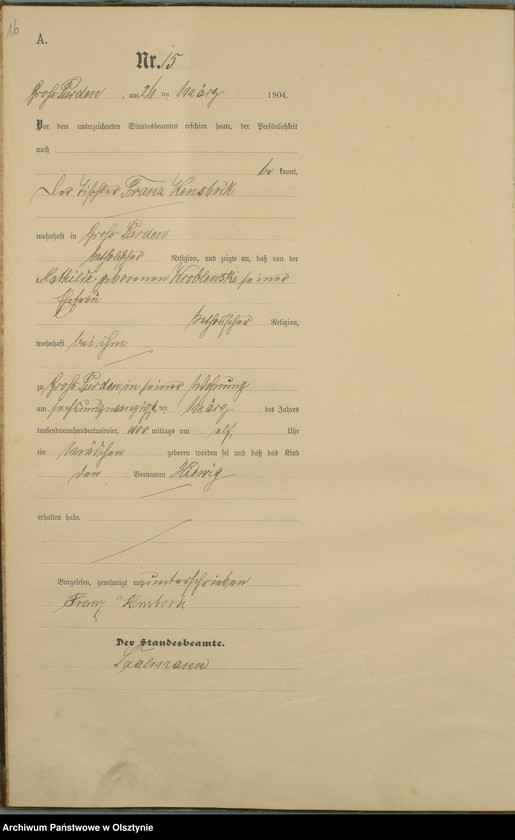 16
A.
Nr. 15
Groß Purden, am 26 ten März 1904.
Vor dem unterzeichneten Standesbeamten erschien heute, der Persönlichkeit
nach
be kannt,
Der Tischler Franz Kensbock
wohnhaft in Groß Purden
katholischer Religion, und zeigte an, daß von der
Mathilde geborenen Wroblewski seiner
Ehefrau
katholischer Religion,
wohnhaft bei ihm
zu Groß Purden in seiner Wohnung
am sechsundzwanzigsten März des Jahres
tausendneunhundertundvier, vor mittags um elf Uhr
ein Mädchen geboren worden sei und daß das Kind
den Vornamen Hedwig
erhalten habe.
Vorgelesen, genehmigt und unterschrieben
Franz Kensbock
Der Standesbeamte.
Saalmann
Archiwum Państwowe w Olsztynie